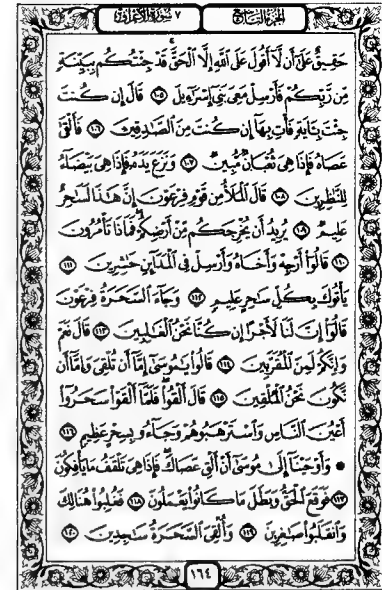 الجزء التاسع
٧ سورة الأعراف
حَقِيقٌ عَلَىٰٓ أَن لَّآ أَقُولَ عَلَى ٱللَّهِ إِلَّا ٱلْحَقَّ قَدْ جِئْتُكُم بِبَيِّنَةٍ
مِّن رَّبِّكُمْ فَأَرْسِلْ مَعِىَ بَنِىٓ إِسْرَٰٓءِيلَ ١٠٥ قَالَ إِن كُنتَ
جِئْتَ بِـَٔايَةٍ فَأْتِ بِهَآ إِن كُنتَ مِنَ ٱلصَّـٰدِقِينَ ١٠٦ فَأَلْقَىٰ
عَصَاهُ فَإِذَا هِىَ ثُعْبَانٌ مُّبِينٌ ١٠٧ وَنَزَعَ يَدَهُۥ فَإِذَا هِىَ بَيْضَآءُ
لِلنَّـٰظِرِينَ ١٠٨ قَالَ ٱلْمَلَأُ مِن قَوْمِ فِرْعَوْنَ إِنَّ هَـٰذَا لَسَـٰحِرٌ
عَلِيمٌ ١٠٩ يُرِيدُ أَن يُخْرِجَكُم مِّنْ أَرْضِكُمْ فَمَاذَا تَأْمُرُونَ
١١٠ قَالُوٓا۟ أَرْجِهْ وَأَخَاهُ وَأَرْسِلْ فِى ٱلْمَدَآئِنِ حَـٰشِرِينَ ١١١
يَأْتُوكَ بِكُلِّ سَـٰحِرٍ عَلِيمٍ ١١٢ وَجَآءَ ٱلسَّحَرَةُ فِرْعَوْنَ
قَالُوٓا۟ إِنَّ لَنَا لَأَجْرًا إِن كُنَّا نَحْنُ ٱلْغَـٰلِبِينَ ١١٣ قَالَ نَعَمْ
وَإِنَّكُمْ لَمِنَ ٱلْمُقَرَّبِينَ ١١٤ قَالُوا۟ يَـٰمُوسَىٰٓ إِمَّآ أَن تُلْقِىَ وَإِمَّآ أَن
نَّكُونَ نَحْنُ ٱلْمُلْقِينَ ١١٥ قَالَ أَلْقُوا۟ فَلَمَّآ أَلْقَوْا۟ سَحَرُوٓا۟
أَعْيُنَ ٱلنَّاسِ وَٱسْتَرْهَبُوهُمْ وَجَآءُو بِسِحْرٍ عَظِيمٍ ١١٦
۞ وَأَوْحَيْنَآ إِلَىٰ مُوسَىٰٓ أَنْ أَلْقِ عَصَاكَ فَإِذَا هِىَ تَلْقَفُ مَا يَأْفِكُونَ
١١٧ فَوَقَعَ ٱلْحَقُّ وَبَطَلَ مَا كَانُوا۟ يَعْمَلُونَ ١١٨ فَغُلِبُوا۟ هُنَالِكَ
وَٱنقَلَبُوا۟ صَـٰغِرِينَ ١١٩ وَأُلْقِىَ ٱلسَّحَرَةُ سَـٰجِدِينَ ١٢٠
١٦٤